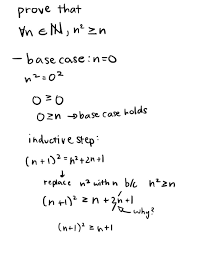 prove that
∀n ∈ ℕ, n² ≥ n
- base case: n=0
n² = 0²
0 ≥ 0
0 ≥ n → base case holds
inductive step:
(n+1)² = n² + 2n + 1
↓
replace n² with n b/c n² ≥ n
(n+1)² ≥ n + 2n + 1
why?
(n+1)² ≥ n+1